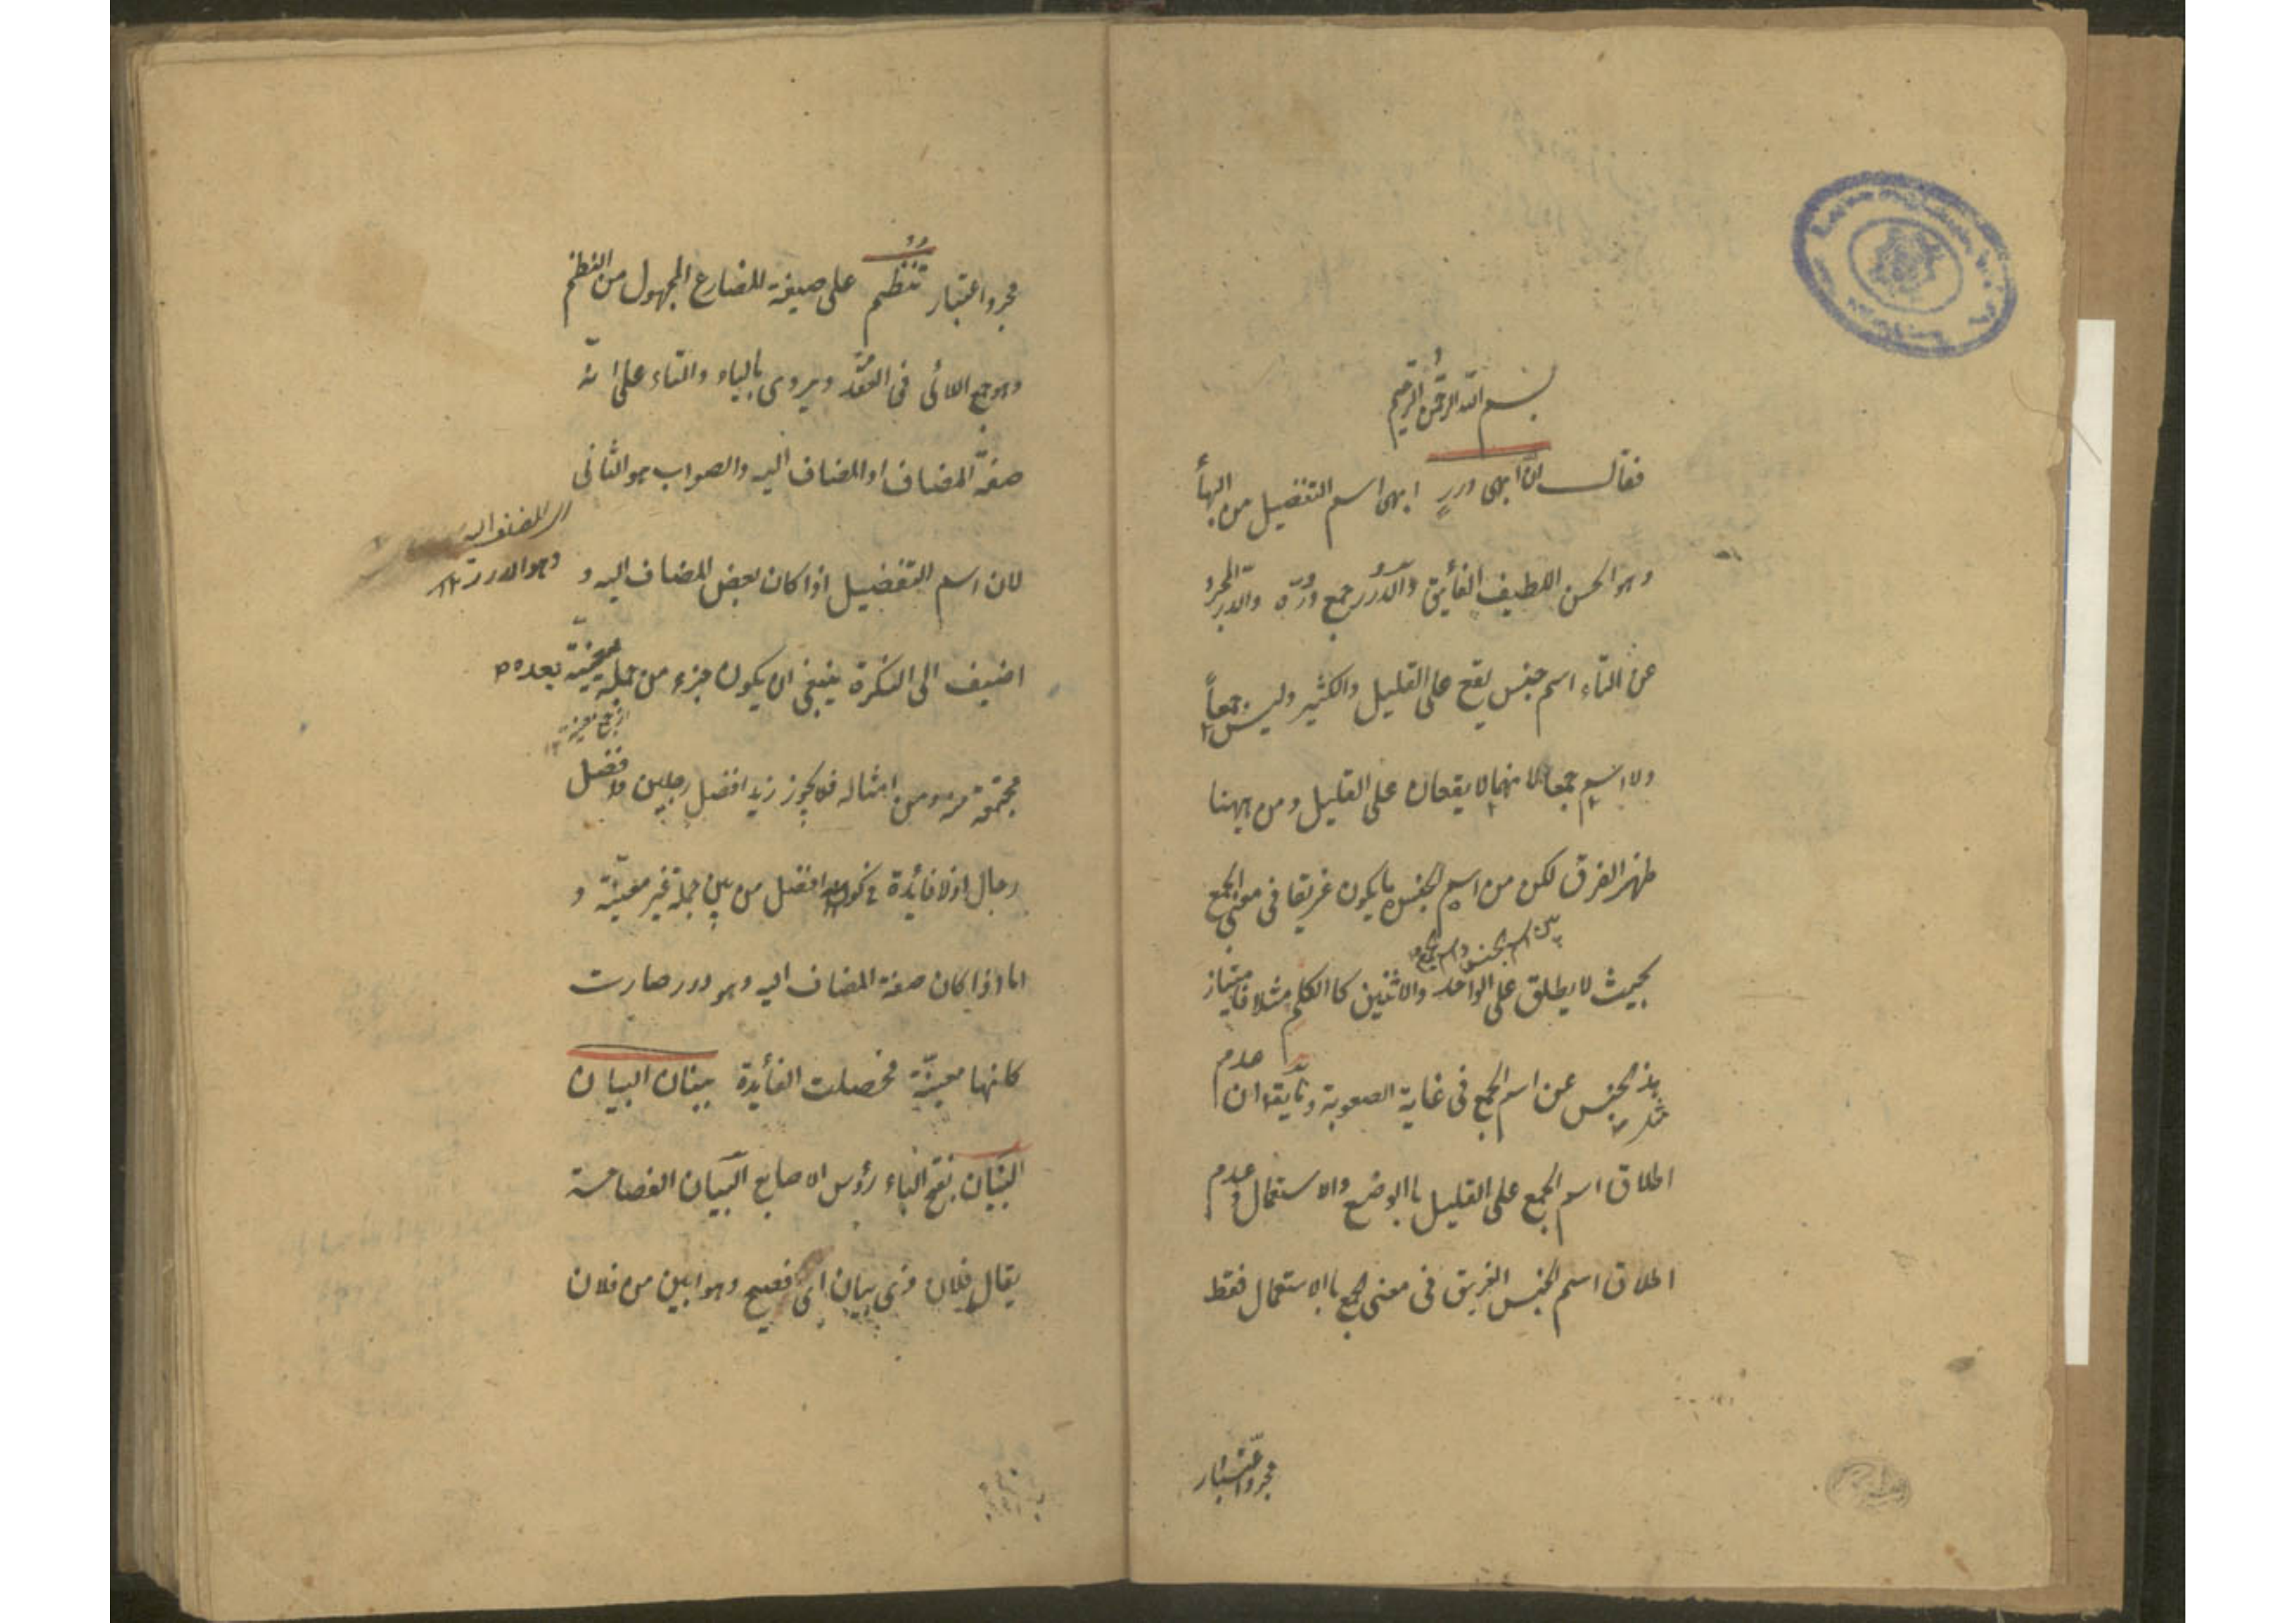 بسم الله الرحمن الرحيم
فقال ان ابهى درر ابهى اسم التفضيل من البهأ
وهو الحسن اللطيف الفأيق والدرر جمع درّة والدر المجرد
عن التاء اسم جنس يقع على القليل والكثير وليس جمعاً
ولا اسم جمع لانهما لا يقعان على القليل ومن ههنا
ظهر الفرق لكن من اسم الجنس ما يكون غريقا فى معنى الجمع
بين اسم الجنس واسم الجمع
بحيث لا يطلق على الواحد والاثنين كالكلم مثلا فامتياز
هذ الجنس عن اسم الجمع فى غاية الصعوبة وان عدم
اطلاق اسم الجمع على القليل باالوضع والاستعمال وعدم
اطلاق اسم الجنس الغريق فى معنى الجمع باالاستعمال فقط
مجرد اعتبار
مجرد اعتبار تنظم على صيغة المضارع المجهول من النظم
وهو جمع اللائى فى العقد ويروى بالياء والتاء على انه
صفة المضاف او المضاف اليه والصواب هو الثانى
اى المضاف اليه
وهو الدرر ١٢
لان اسم التفضيل اذا كان بعض المضاف اليه و
اضيف الى النكرة ينبغى ان يكون جزء من جملة معينة بعده
مجتمعة منه ومن امثاله فلا يجوز زيد افضل رجلين وافضل
رجال اذ لا فائدة فى كونه افضل من بين جملة غير معينّة و
اما اذا كان صفة المضاف اليه وهو درر صارت
كانها معينّة فحصلت الفأيدة ببنان البيان
البنان بفتح الباء رؤس الاصابع البيان الفصاحة
يقال فلان ذى بيان اى فصيح وهو ابين من فلان